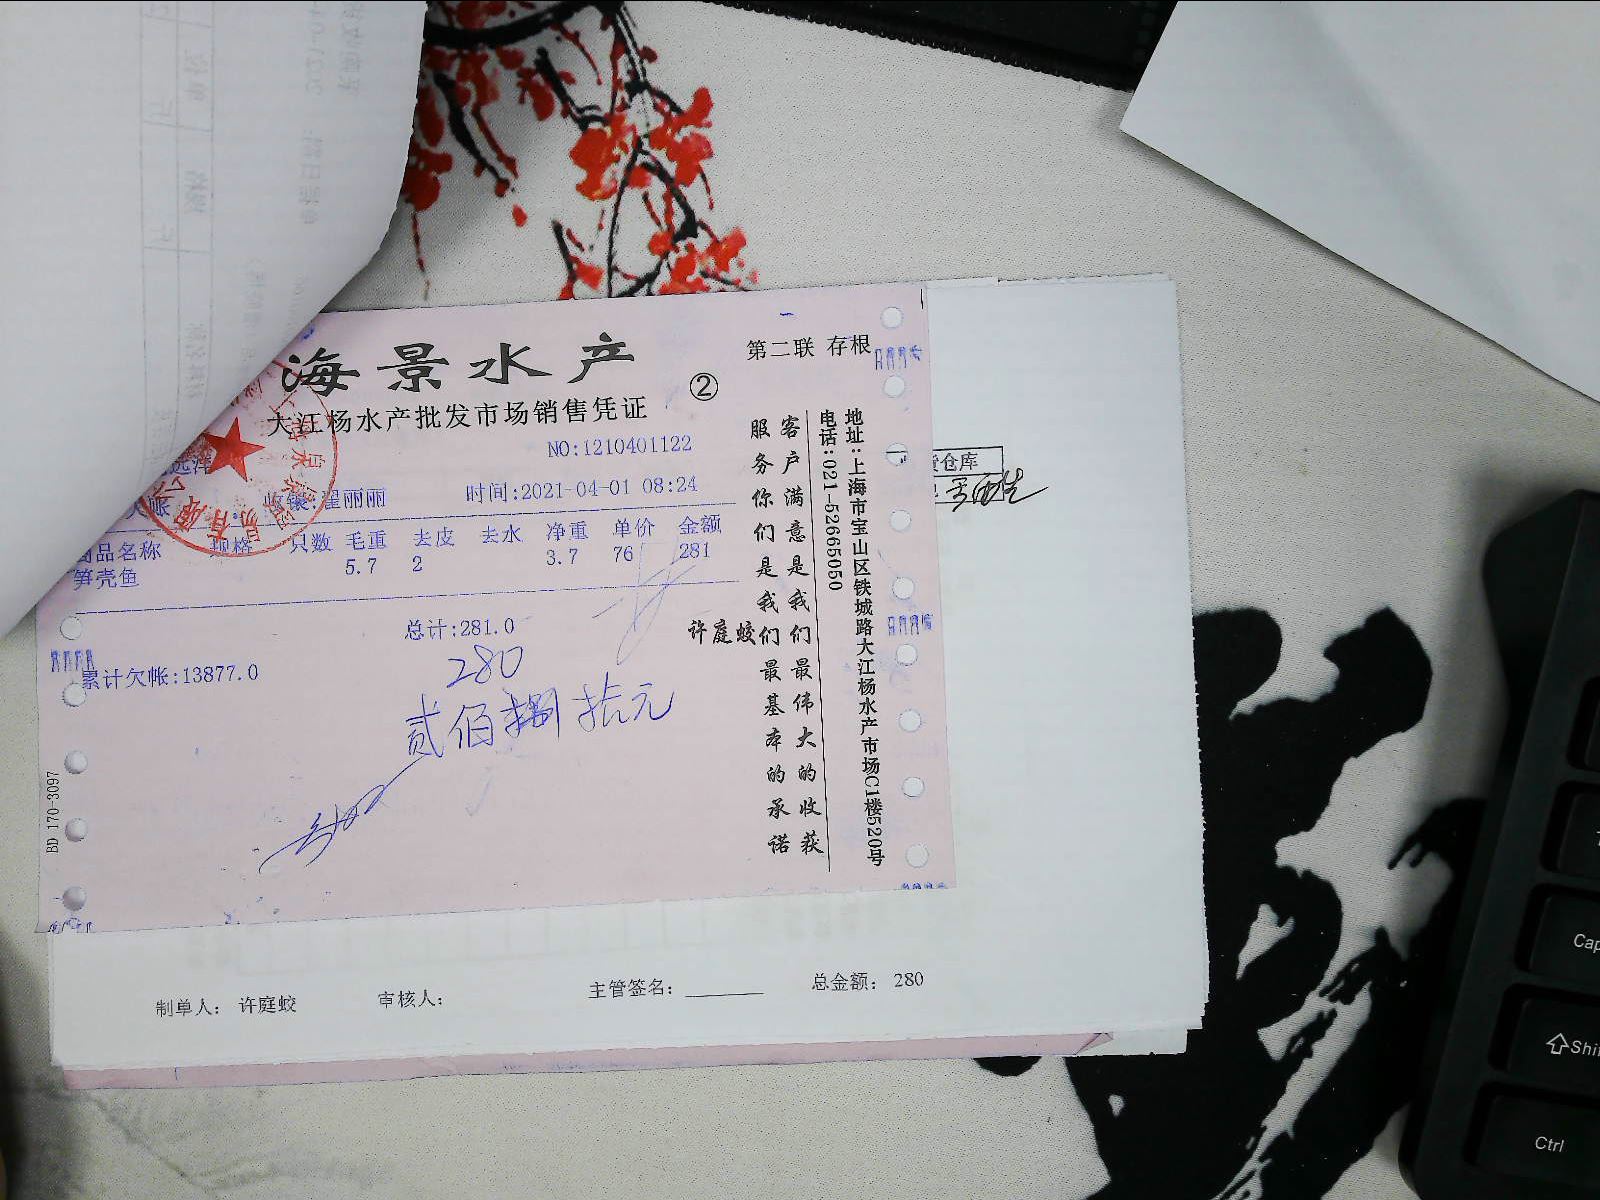 海景水产
第二联 存根
②
大江杨水产批发市场销售凭证
NO:1210401122
收银:翟丽丽 时间:2021-04-01 08:24
商品名称 规格 只数 毛重 去皮 去水 净重 单价 金额
笋壳鱼 5.7 2 3.7 76 281
总计:281.0
累计欠帐:13877.0
280
贰佰捌拾元
许庭蛟
客户满意是我们最伟大的收获
服务你们是我们最基本的承诺
地址:上海市宝山区铁城路大江杨水产市场C1楼520号
电话:021-52665050
BD 170-3097
货仓库
制单人: 许庭蛟 审核人: 主管签名: 总金额: 280
Shift
Ctrl